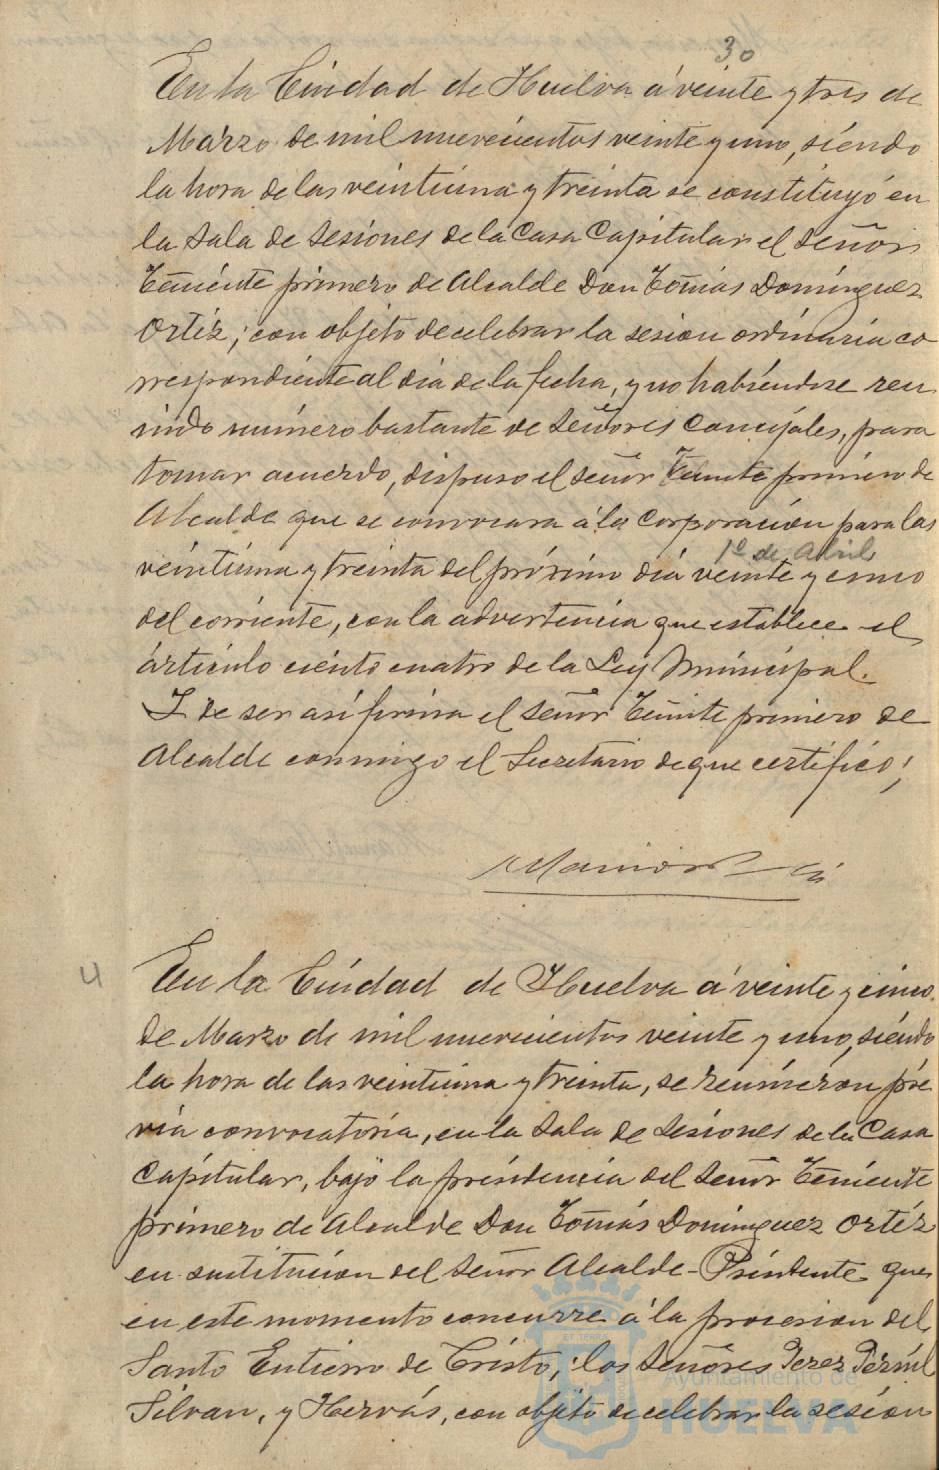 30
En la Ciudad de Huelva á veinte y tres de
Marzo de mil nuevecientos veinte y uno, siendo
la hora de las veintiuna y treinta se constituyó en
la Sala de Sesiones de la Casa Capitular el señor
Teniente primero de Alcalde Don Tomás Domínguez
Ortíz; con objeto de celebrar la sesion ordinaria co
rrespondiente al dia de la fecha, y no habiéndose reu
nido número bastante de Señores Concejales, para
tomar acuerdo, dispuso el señor Teniente primero de
Alcalde que se convocara á la Corporación para las
1º de Abril
veintiuna y treinta del próximo día veinte y cinco
del corriente, con la advertencia que establece el
artículo ciento cuatro de la Ley Municipal.
Y de ser asi firma el señor Teniente primero de
Alcalde conmigo el Secretario de que certifico;
4
En la Ciudad de Huelva á veinte y cinco
de Marzo de mil nuevecientos veinte y uno, siendo
la hora de las veintiuna y treinta, se reunieron pré
via convocatoria, en la Sala de Sesiones de la Casa
Capitular, bajo la presidencia del Señor Teniente
primero de Alcalde Don Tomás Dominguez Ortíz
en sustitución del Señor Alcalde-Presidente que
en este momento concurre á la procesion del
Santo Entierro de Cristo; los Señores Perez
Silvan, y Hervás, con objeto de celebrar la sesión
Ayuntamiento de
HUELVA